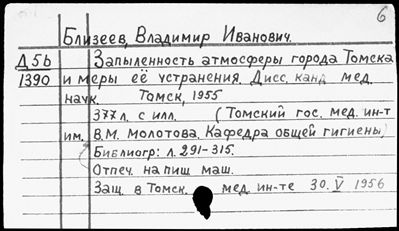 6
Близеев, Владимир Иванович.
Д 5ь Запыленность атмосферы города Томска
1390 и меры её устранения. Дисс. канд. мед.
наук. Томск, 1955
377 л. с илл. (Томский гос. мед. ин-т
им. В.М. Молотова. Кафедра общей гигиены)
Библиогр: л. 291-315.
Отпеч. на пиш. маш.
Защ. в Томск. мед. ин-те 30.V 1956